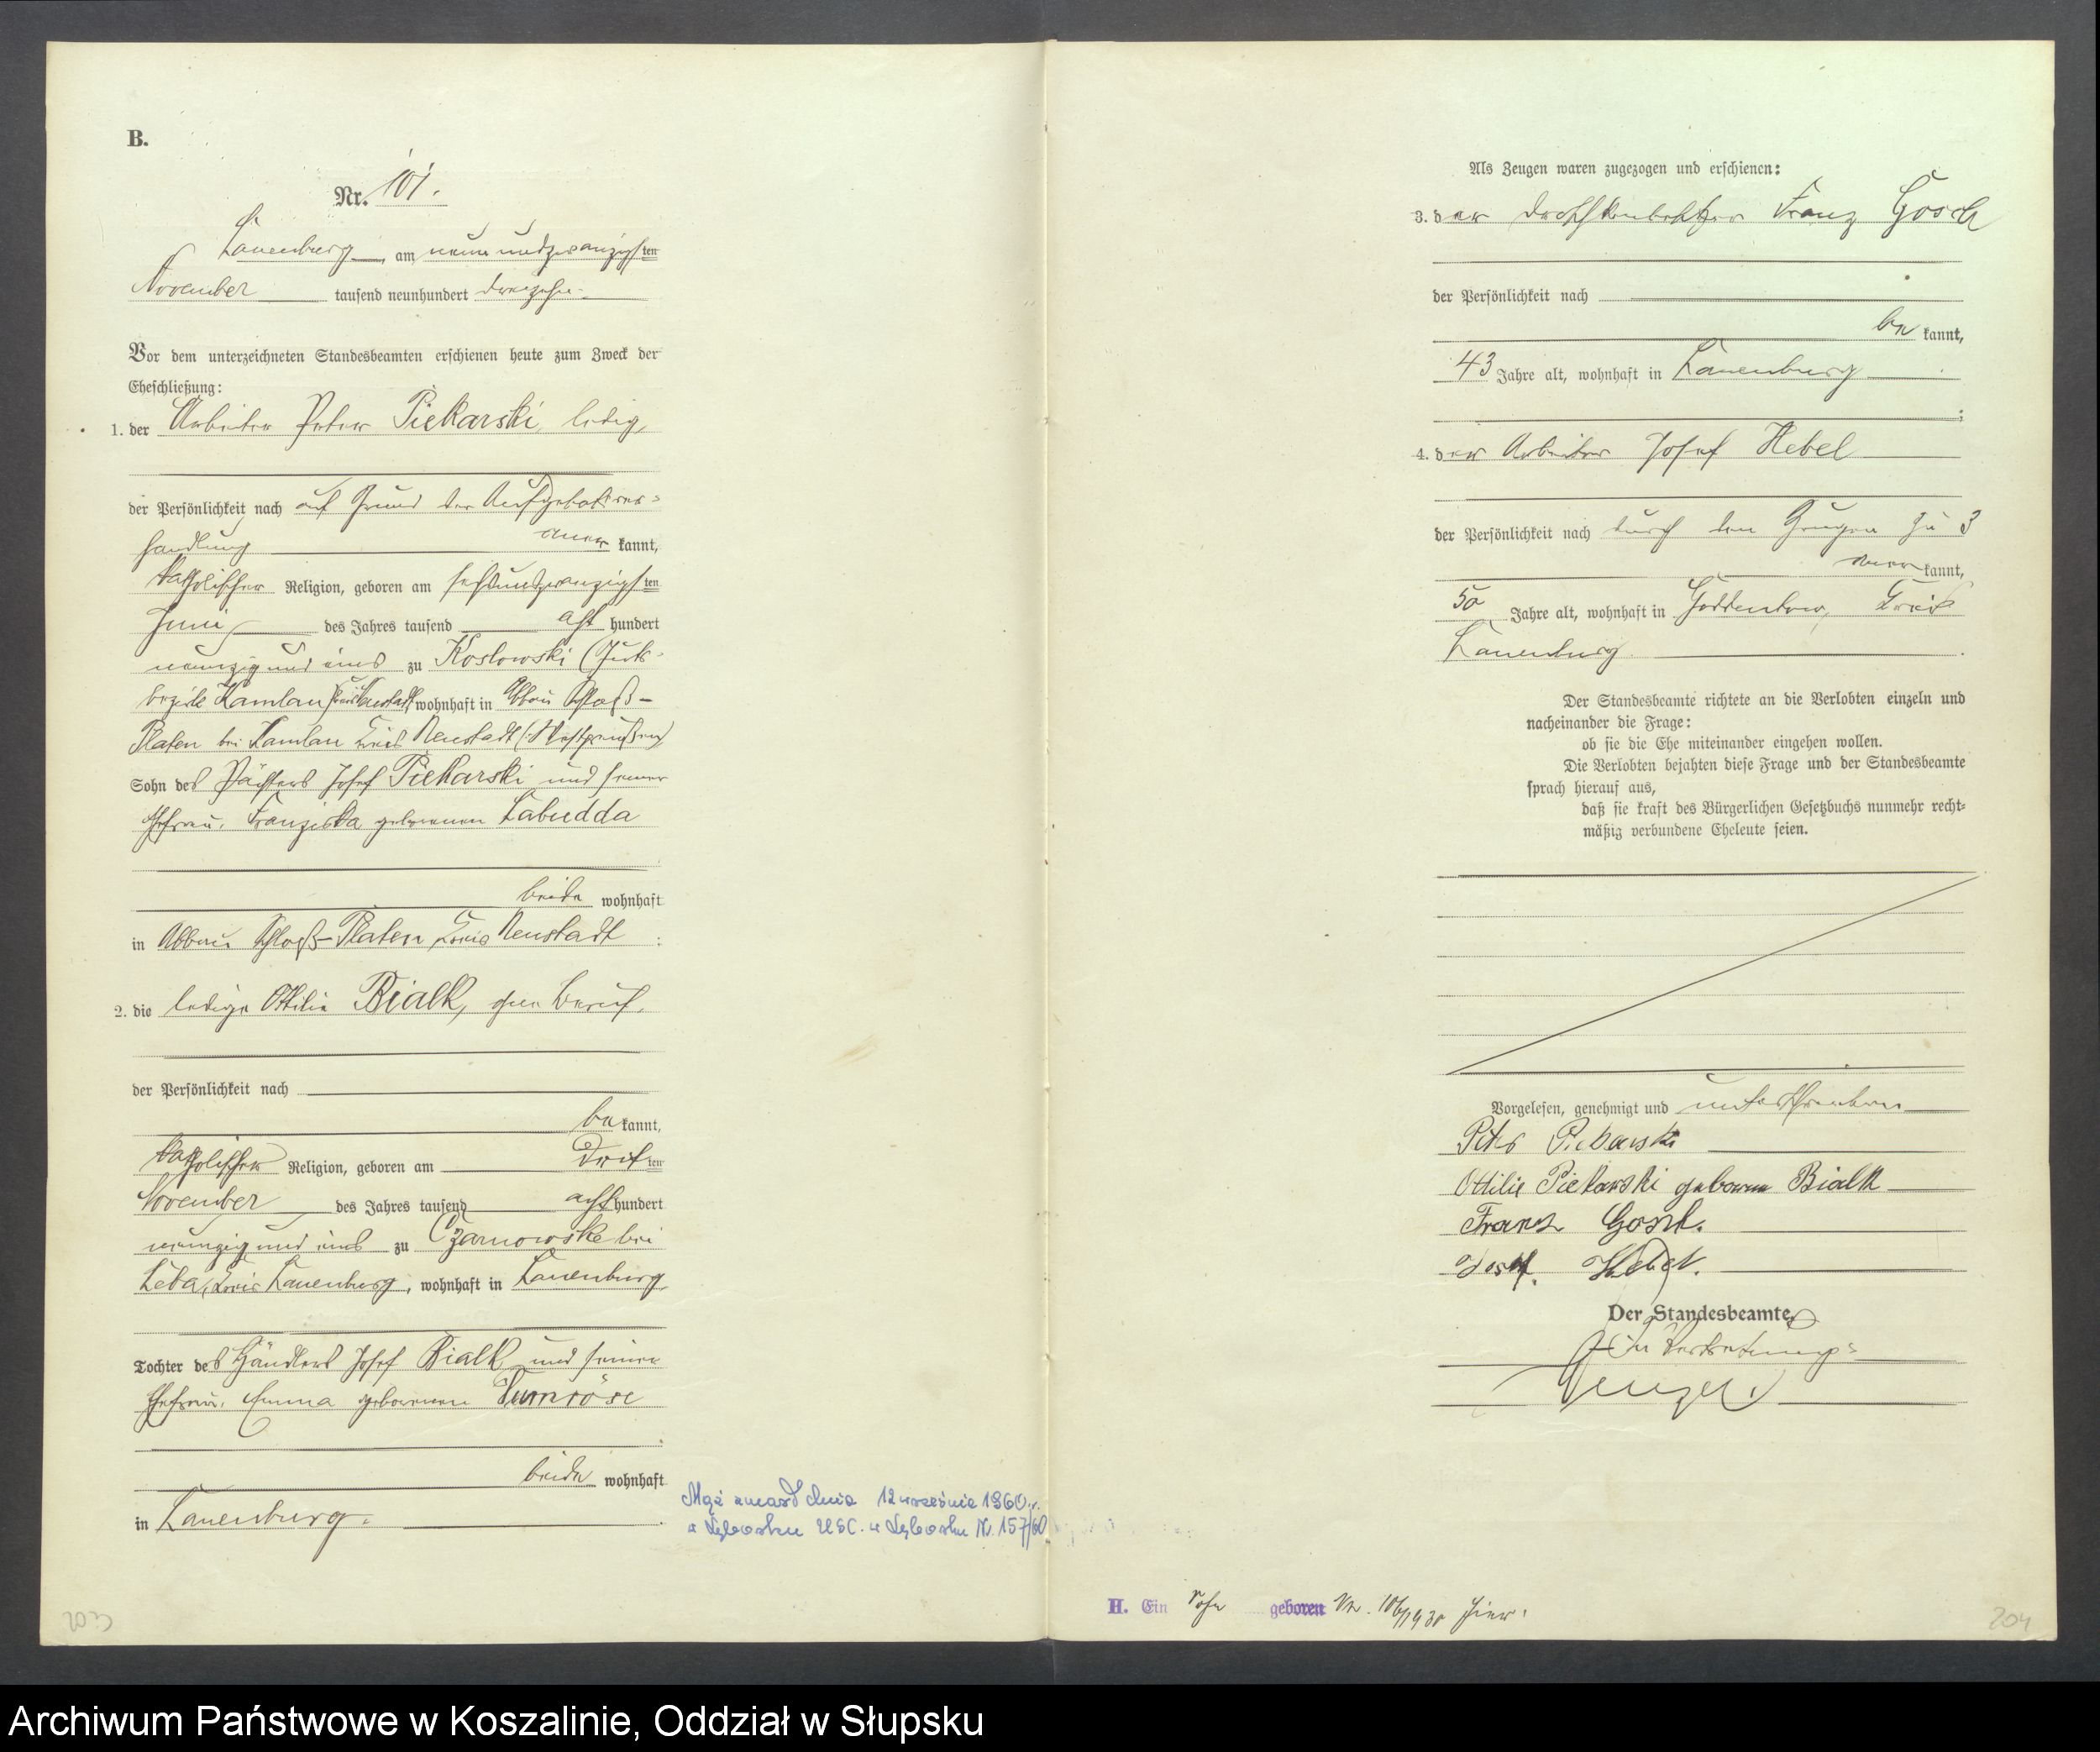 B.
Nr. 101.
Lauenburg, am neunundzwanzigsten
November tausend neunhundert dreizehn.
Vor dem unterzeichneten Standesbeamten erschienen heute zum Zweck der
Eheschließung:
1. der Arbeiter Peter Piekarski, ledig,
der Persönlichkeit nach auf Grund der Aufgebotsver=
handlung anerkannt,
katholischer Religion, geboren am sechsundzwanzigsten
Juni des Jahres tausend achthundert
neunzig und eins zu Koslowski (Guts-
bezirk Kamlau) Kreis Neustadt wohnhaft in Abbau Schloß-
Platen bei Kamlau Kreis Neustadt (Westpreußen)
Sohn des Pächters Josef Piekarski und seiner
Ehefrau, Franziska geborenen Labudda
beide wohnhaft
in Abbau Schloß-Platen Kreis Neustadt;
2. die ledige Ottilie Bialk, ohne Beruf,
der Persönlichkeit nach
bekannt,
katholischer Religion, geboren am dritten
November des Jahres tausend achthundert
neunzig und eins zu Czarnowske bei
Leba, Kreis Lauenburg, wohnhaft in Lauenburg
Tochter des Händlers Josef Bialk und seiner
Ehefrau, Emma geborenen Kumröse
beide wohnhaft
in Lauenburg.
Mąż zmarł dnia 12 września 1960 r.
w Lęborku USC. w Lęborku Nr. 157/60
203
Als Zeugen waren zugezogen und erschienen:
3. der Droschkenbesitzer Franz Gosch
der Persönlichkeit nach
bekannt,
43 Jahre alt, wohnhaft in Lauenburg
;
4. der Arbeiter Josef Hebel
der Persönlichkeit nach durch den Zeugen zu 3
anerkannt,
50 Jahre alt, wohnhaft in Goddentow, Kreis
Lauenburg.
Der Standesbeamte richtete an die Verlobten einzeln und
nacheinander die Frage:
ob sie die Ehe miteinander eingehen wollen.
Die Verlobten bejahten diese Frage und der Standesbeamte
sprach hierauf aus,
daß sie kraft des Bürgerlichen Gesetzbuchs nunmehr recht=
mäßig verbundene Eheleute seien.
Vorgelesen, genehmigt und unterschrieben
Peter Piekarski
Ottilie Piekarski geborene Bialk
Franz Gosch.
Josef Hebel.
Der Standesbeamte
In Vertretung:
Wenzel
H. Ein Sohn geboren Nr. 106/1930 hier.
204
Archiwum Państwowe w Koszalinie, Oddział w Słupsku